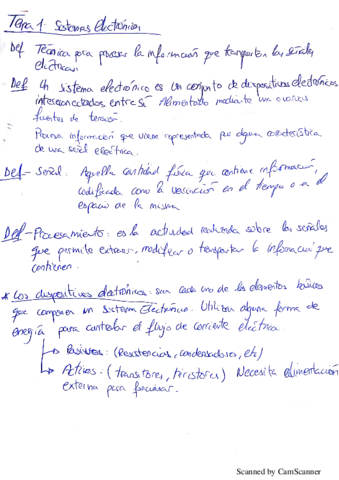 Tema 1: Sistemas Electrónicos
Def Técnica para procesar la información que transportan las señales
eléctricas.
Def Un sistema electrónico es un conjunto de dispositivos electrónicos
interconectados entre sí Alimentado mediante una o varias
fuentes de tensión.
Procesa información que viene representada por alguna característica
de una señal eléctrica.
Def - Señal: Aquella cantidad física que contiene información,
codificada como la variación en el tiempo o en el
espacio de la misma
Def - Procesamiento: es la actividad realizada sobre las señales
que permite extraer, modificar o transportar la información que
contienen.
* Los dispositivos electrónicos: son cada uno de los elementos básicos
que componen un sistema Electrónico. Utilizan alguna forma de
energía para controlar el flujo de corriente eléctrica.
→ Pasivos: (Resistencias, condensadores, etc)
→ Activos: (transistores, tiristores) Necesita alimentación
externa para funcionar.
Scanned by CamScanner